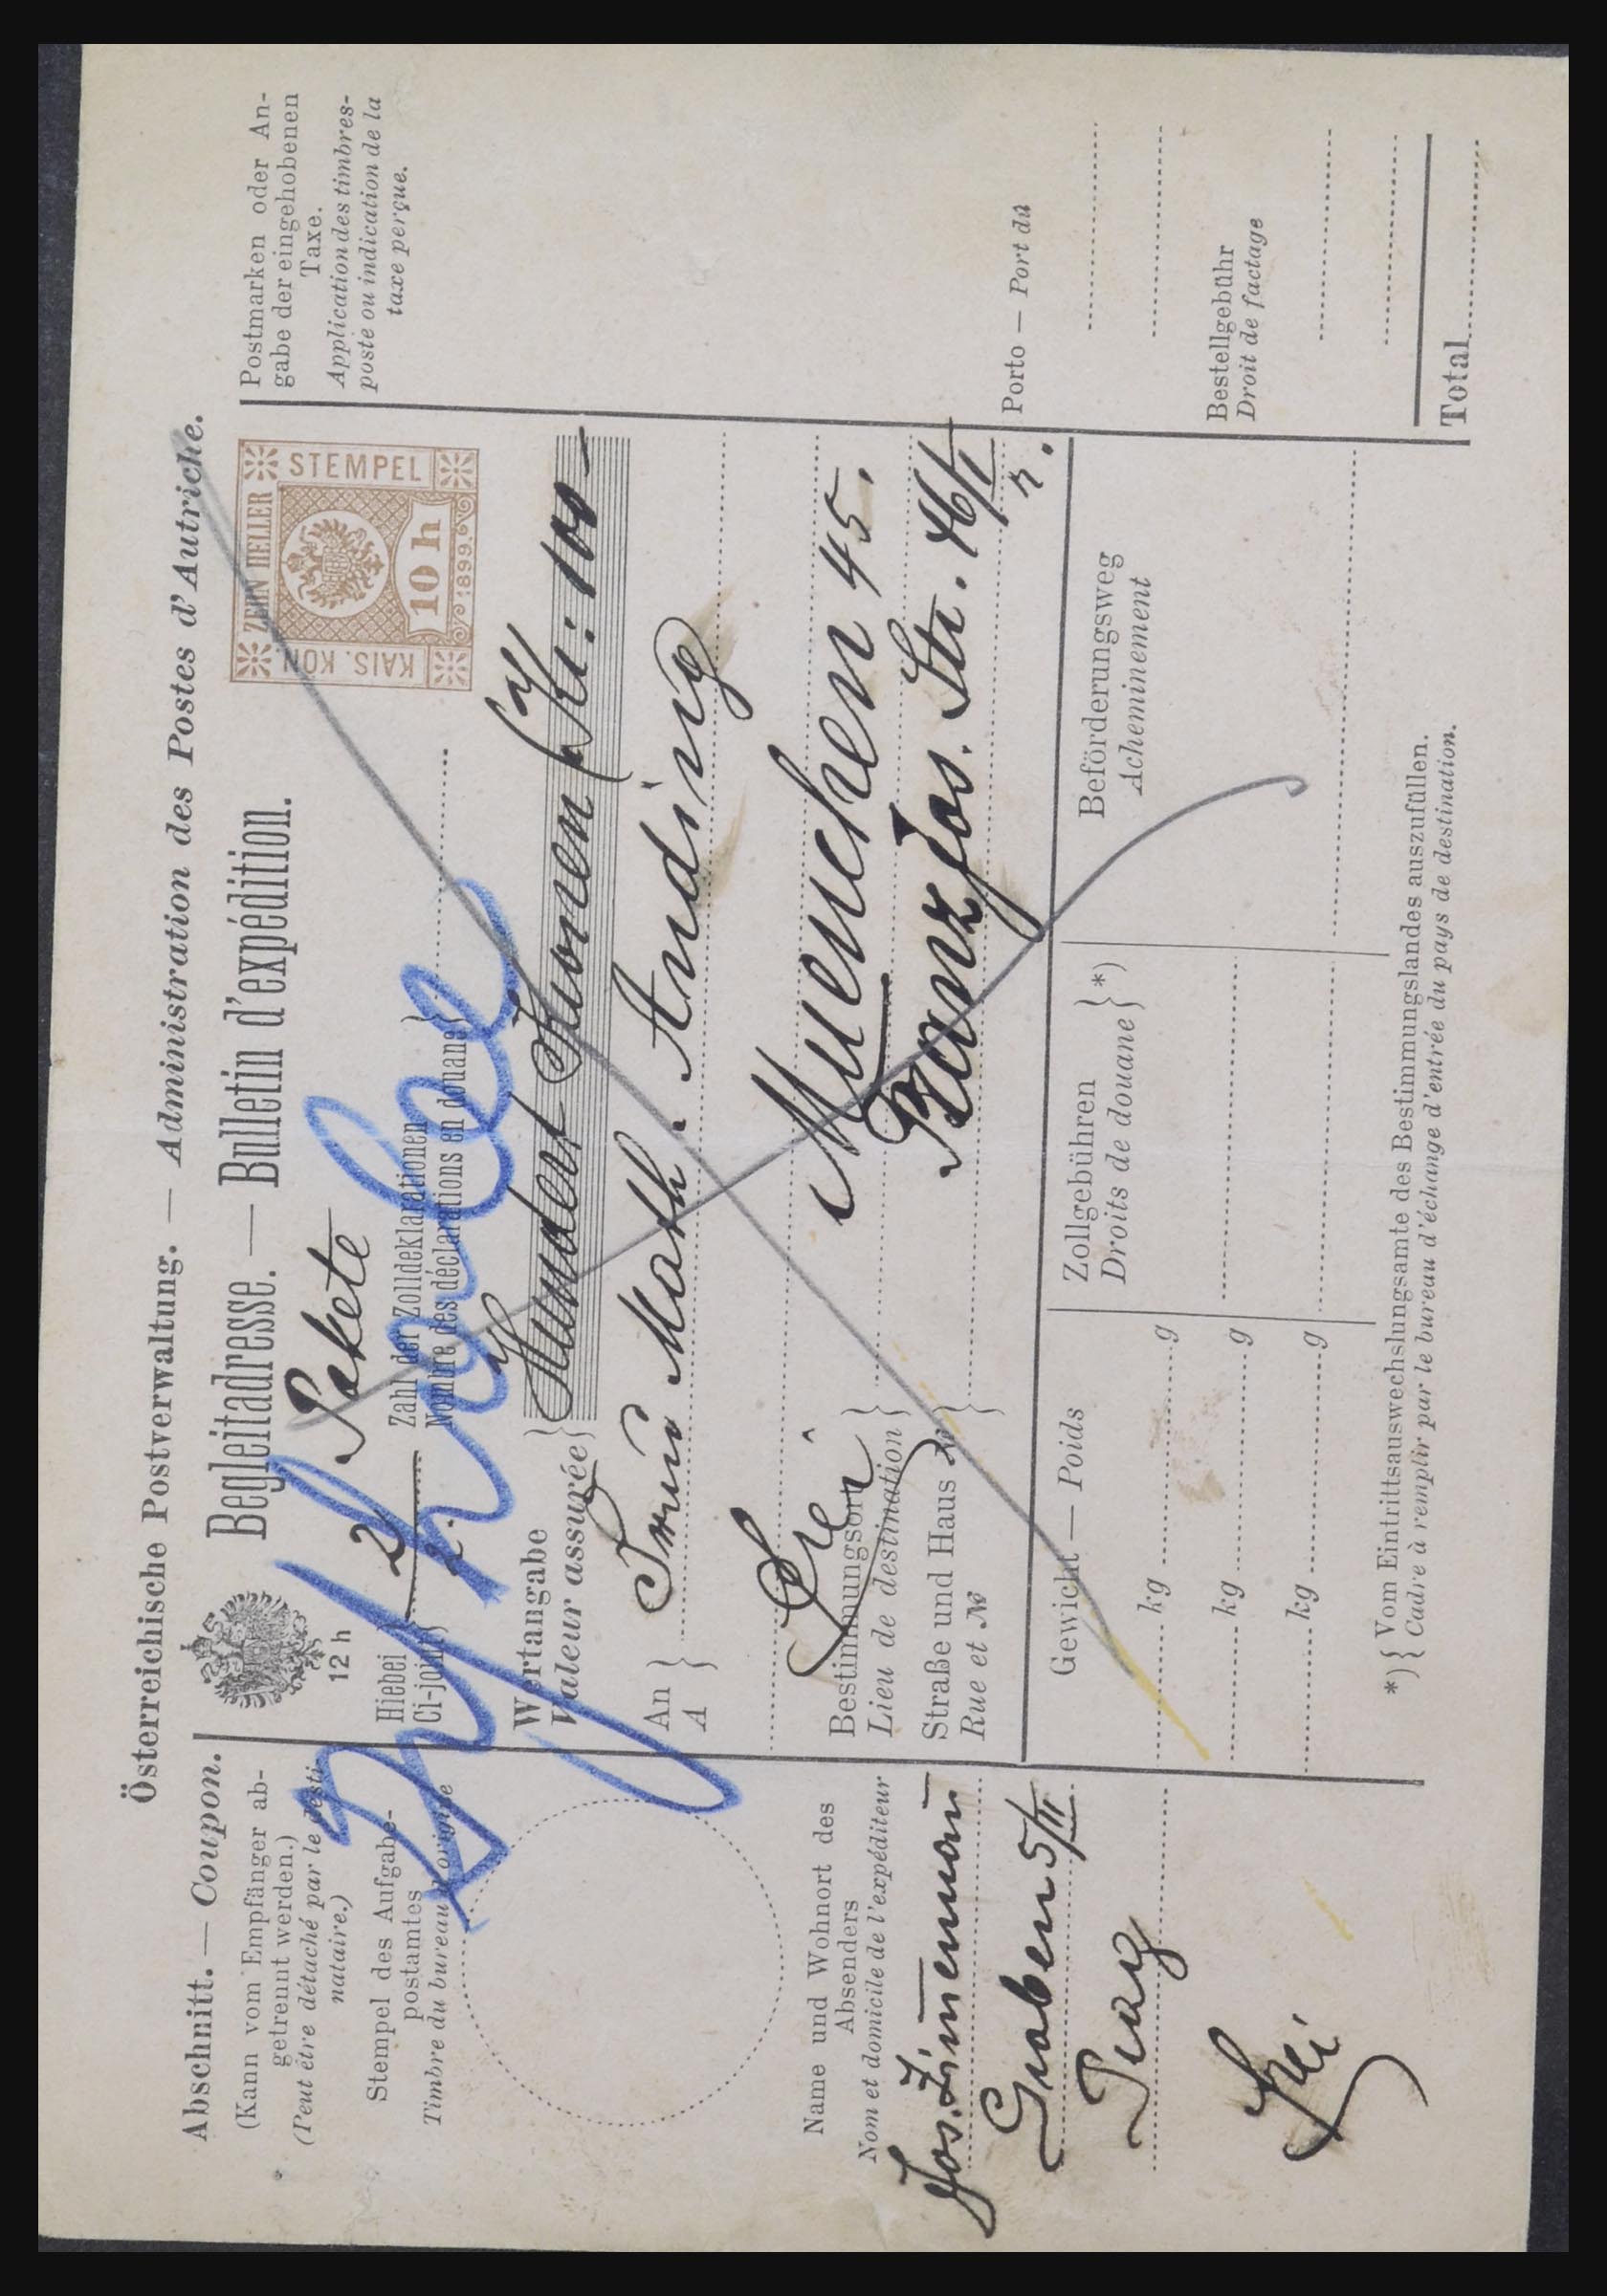 Österreichische Postverwaltung. — Administration des Postes d'Autriche.
Abschnitt. — Coupon.
(Kann vom Empfänger ab-
getrennt werden.)
(Peut être détaché par le desti-
nataire.)
Stempel des Aufgabe-
postamtes
Timbre du bureau d'origine
Name und Wohnort des
Absenders
Nom et domicile de l'expéditeur
Jos. Zimmermann
Graben 5/II
Prag
frei
12 h
Begleitadresse. — Bulletin d'expédition.
ZEHN HELLER
STEMPEL
KAIS. KÖN.
10 h
1899
Hiebei
Ci-joint
2
2.
Pakete
Zahl der Zolldeklarationen
Nombre des déclarations en douane
Wertangabe
Valeur assurée
Hundert Kronen (Kr: 100 –
An
A
Frau Math. Anding
frei
Bestimmungsort
Lieu de destination
Muenchen 45.
Straße und Haus №
Rue et №
Franz Jos. Str. 46/I
r.
Gewicht — Poids
kg g
kg g
kg g
Zollgebühren
Droits de douane *)
Beförderungsweg
Acheminement
*) Vom Eintrittsauswechslungsamte des Bestimmungslandes auszufüllen.
Cadre à remplir par le bureau d'échange d'entrée du pays de destination.
Postmarken oder An-
gabe der eingehobenen
Taxe.
Application des timbres-
poste ou indication de la
taxe perçue.
Porto — Port dû
Bestellgebühr
Droit de factage
Total